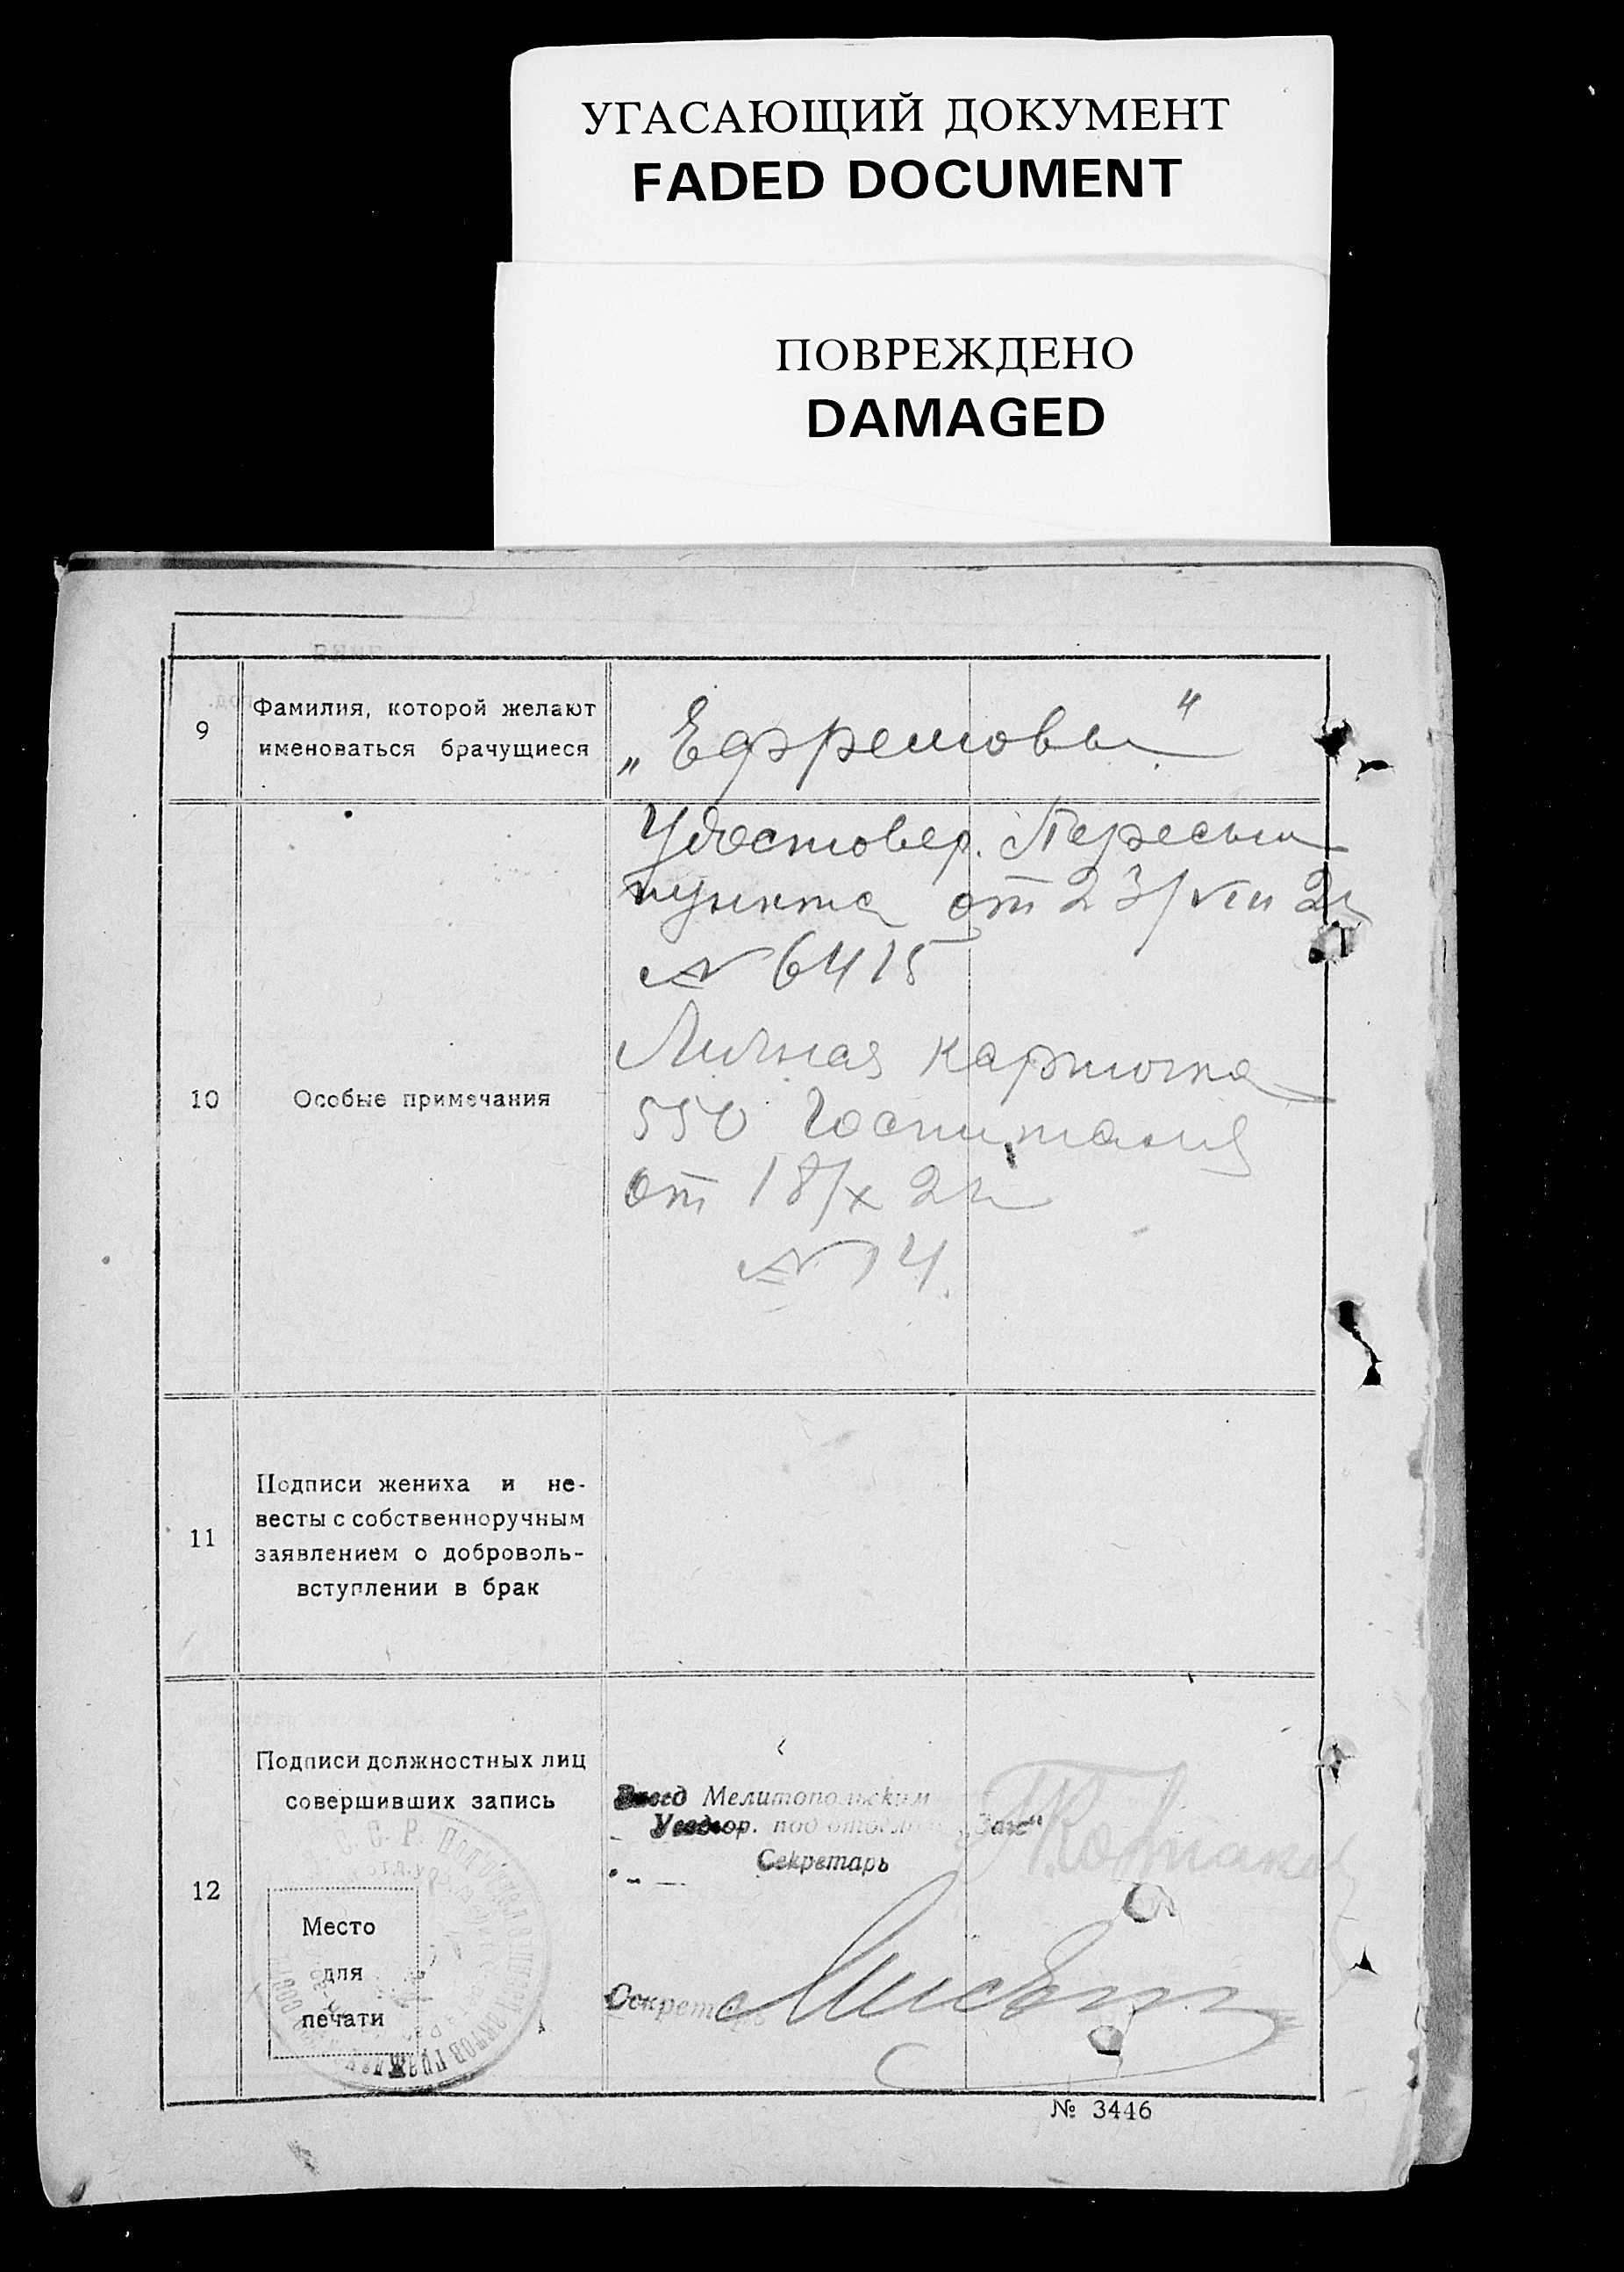 УГАСАЮЩИЙ ДОКУМЕНТ
FADED DOCUMENT
ПОВРЕЖДЕНО
DAMAGED
9
Фамилия, которой желают
именоваться брачущиеся
„Ефремовы"
10
Особые примечания
Удостовер. Пересын
пункта от 23/VIII 21
№ 6415
Личная карточка
550 Госпиталя
от 18/X 21
№ 14.
11
Подписи жениха и не-
весты с собственноручным
заявлением о доброволь-
вступлении в брак
12
Подписи должностных лиц
совершивших запись
Место
для
печати
Мелитопольским
под отделом „Загс"
Секретарь
Секретарь
№ 3446